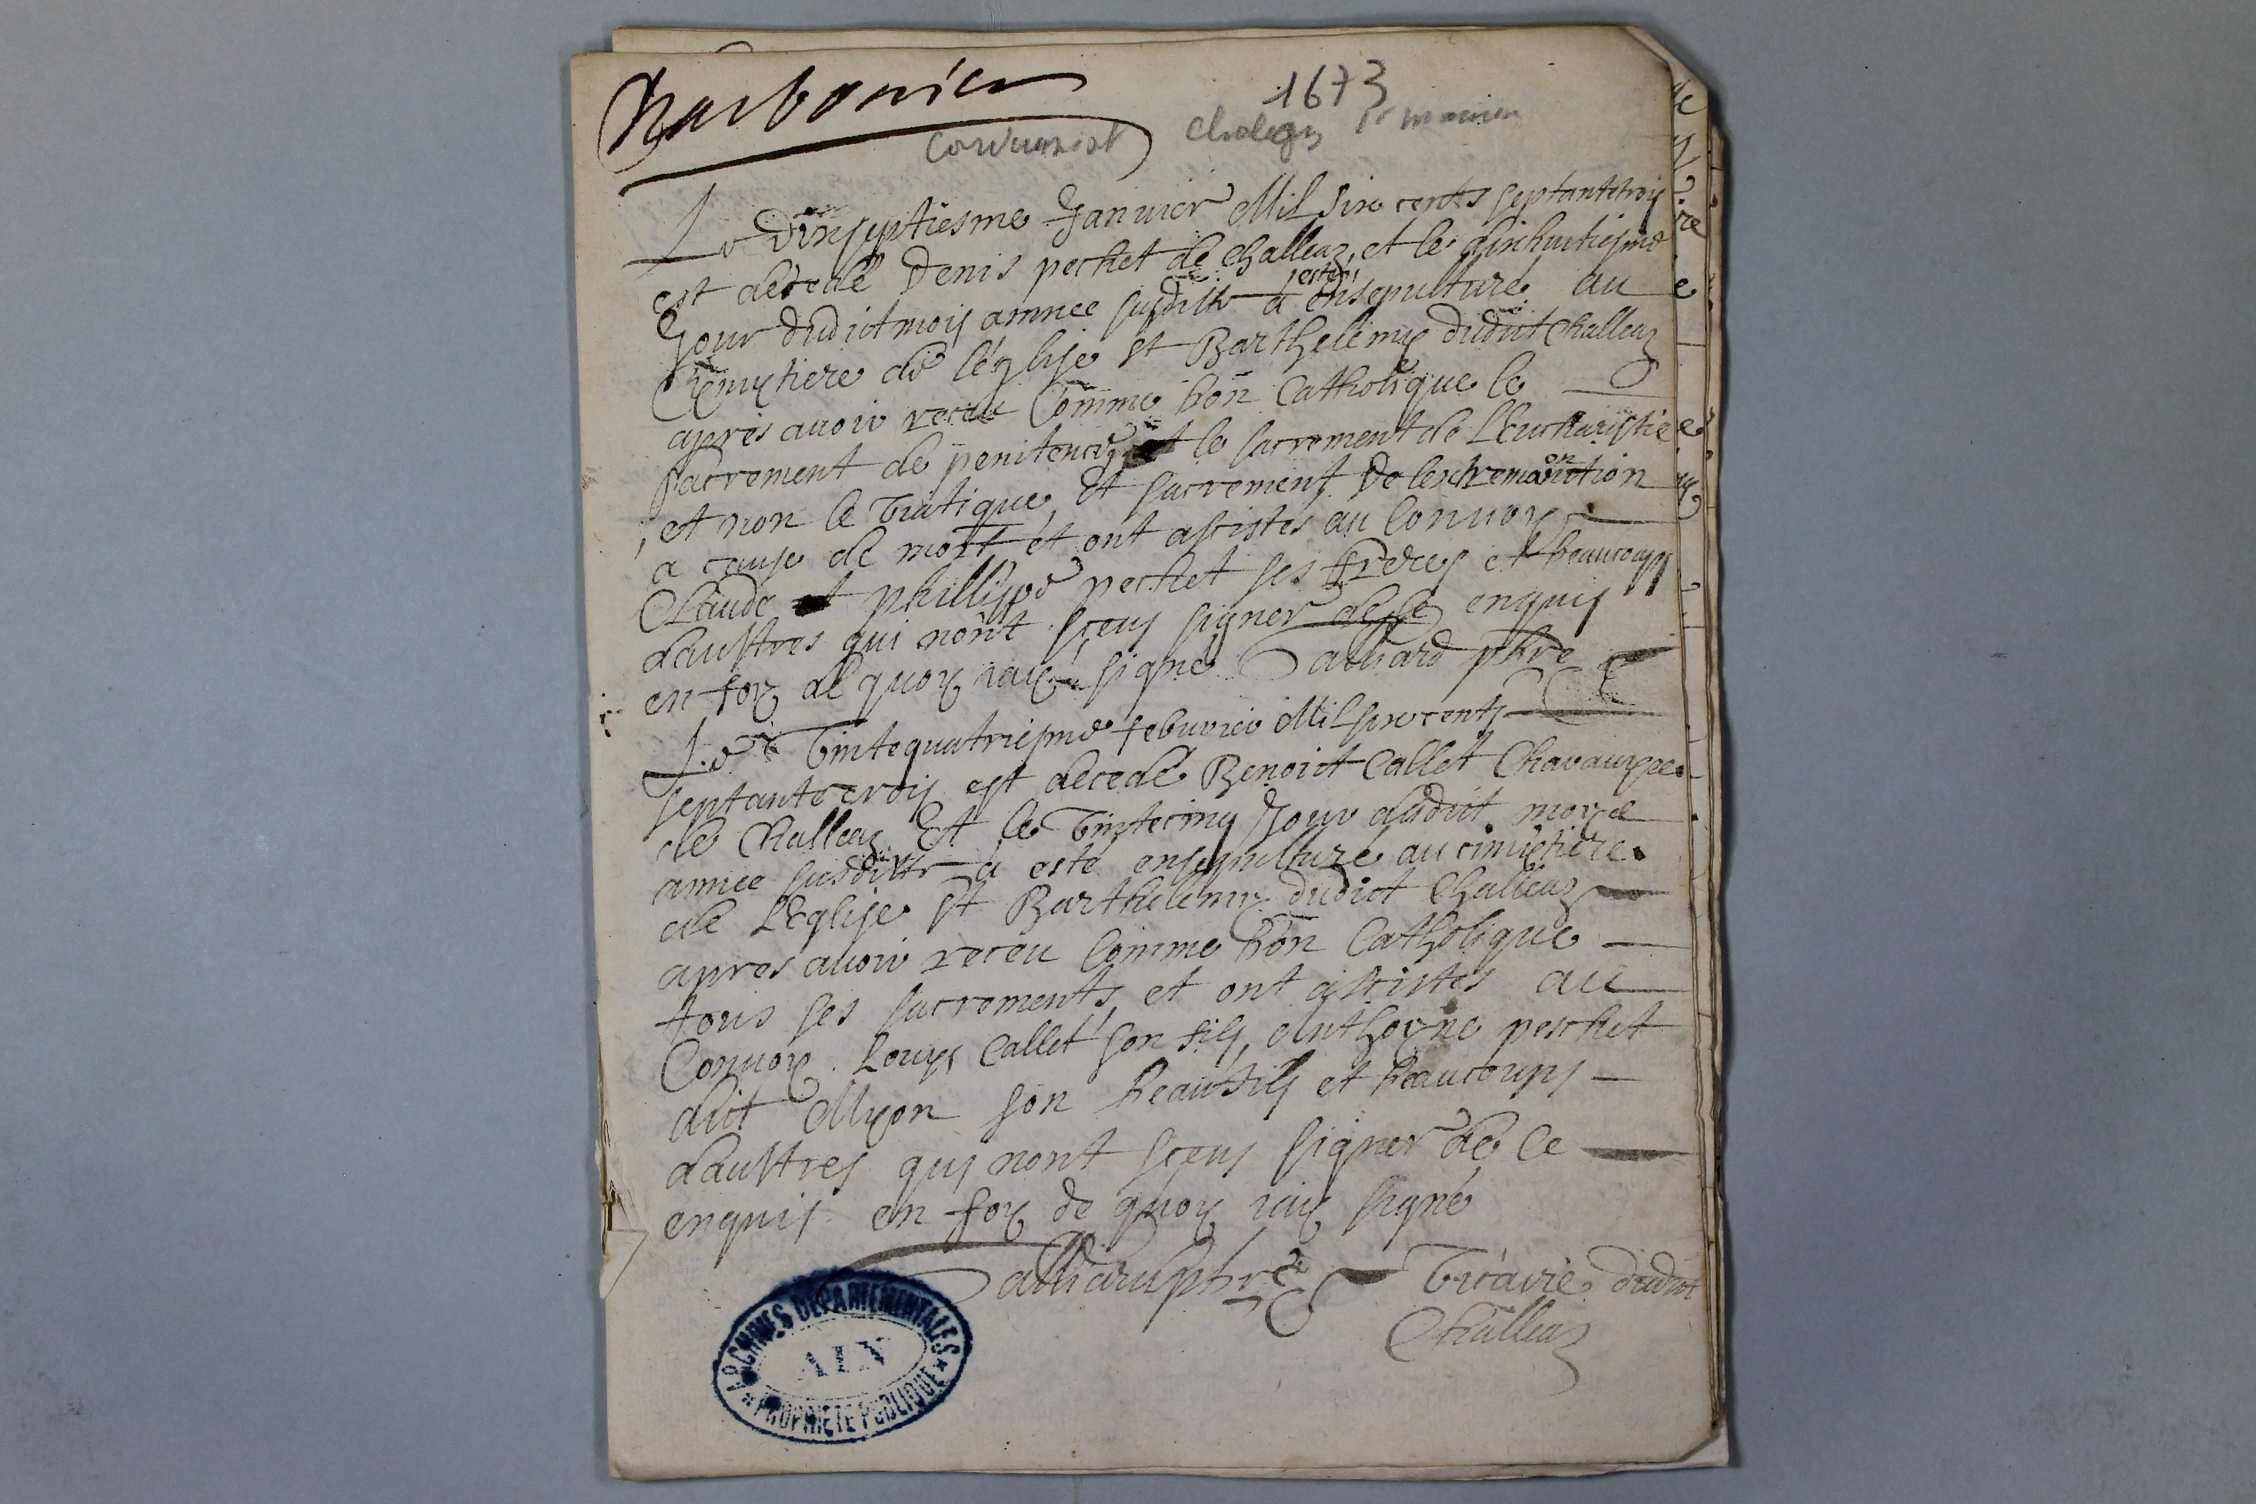 Charbonier
1673
Le dixseptiesme Janvier Mil six cents septantetrois
est décédé Denis pechet de challeaz, et le dixhuitiesme
Jour dudict mois annee susditte a esté ensepulturé au
Cemetiere de l'église St Barthelemy dudict challeaz
apres avoir receu Comme bon Catholique le
sacrement de penitence et le sacrement de l'Eucharistie
et non le viatique et sacrement de l'extremeonction
a cause de mort et ont assistés au Convoy
Claude et phillippe pechet ses frères et beaucoups
daultres qui nont sceus signer de ce enquis
en foy de quoy jay signé pbre
Le vintequatriesme febvrier Mil six cents
septantetrois est decedé Benoict Callet
de challeaz Et le vintecinq Jour dudict moys
annee susditte a esté ensepulturé au cimetiere
de l'Eglise St Barthelemy dudict challeaz
apres avoir receu Comme bon Catholique
tous ses sacrements et ont assistés au
Convoy Louys Callet son fils, Anthoyne peschet
dict Myon son beaufils et beaucoups
daultres quy nont sceus signer de ce
enquis en foy de quoy jay signé
pbre vicaire dudict
challeaz
ARCHIVES DEPARTEMENTALES
AIN
PROPRIETE PUBLIQUE